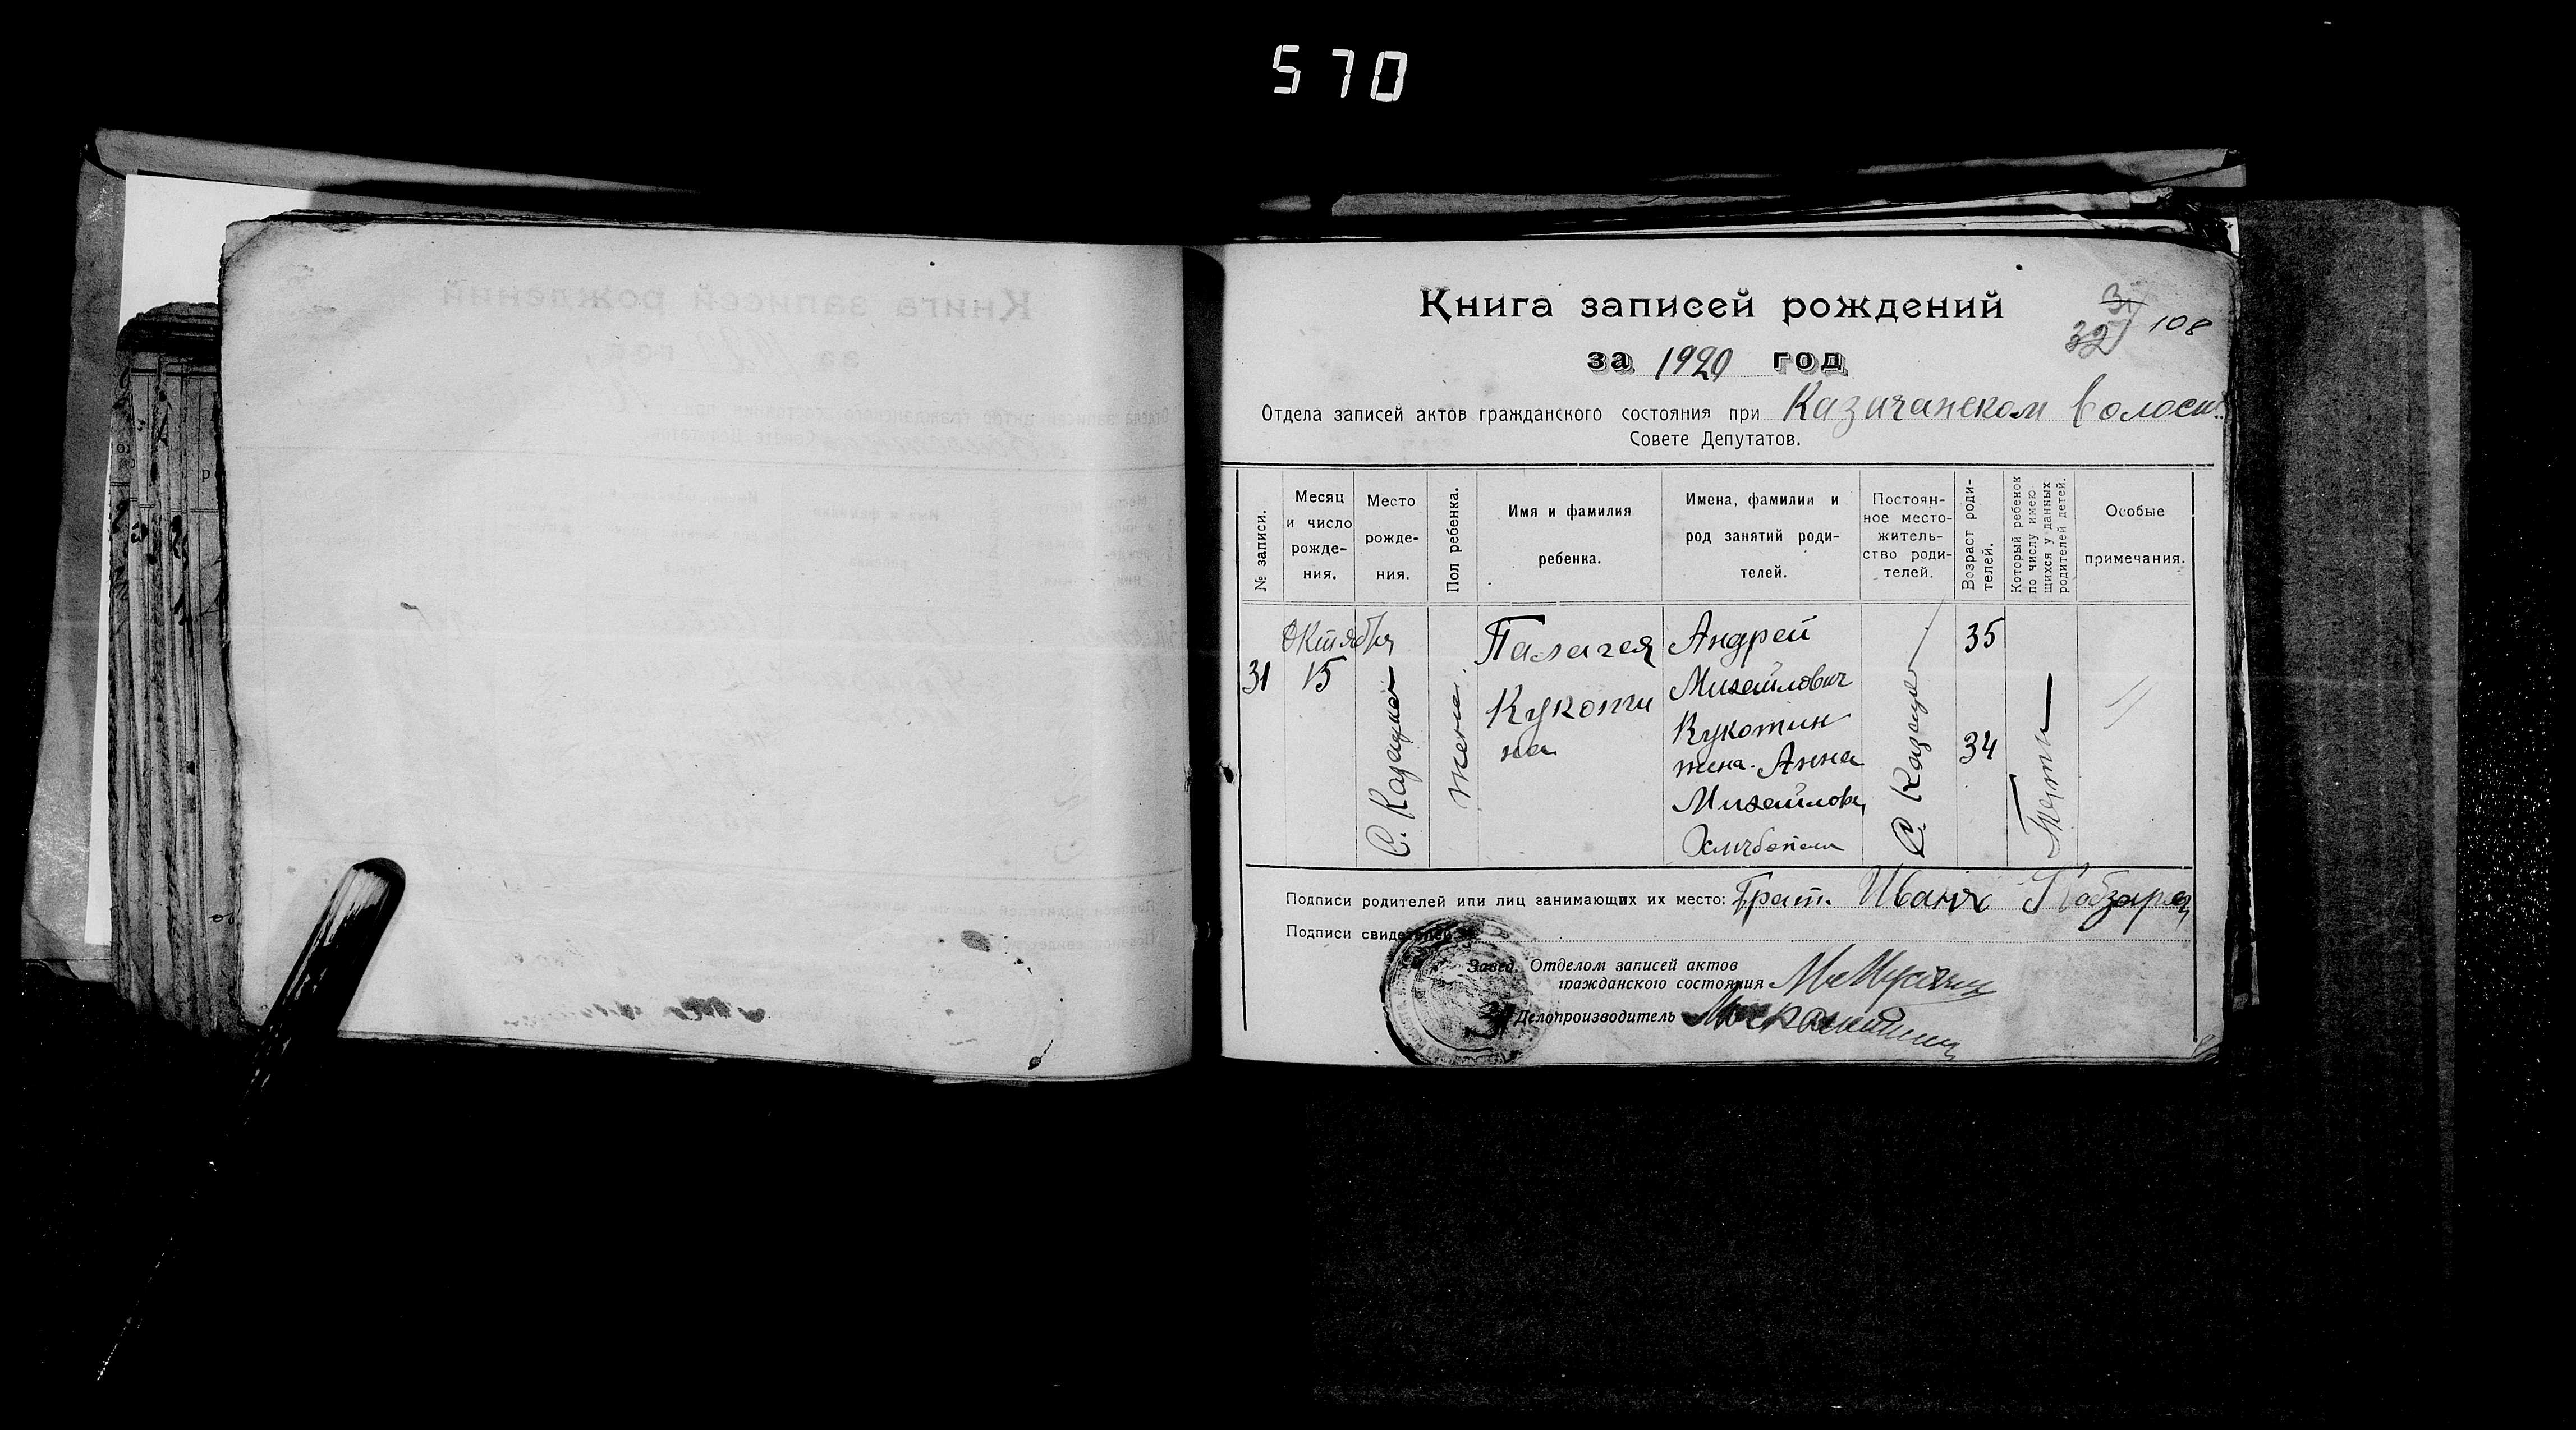 570
Книга записей рождений
31
32 108
за 1920 год
Отдела записей актов гражданского состояния при Казачанском волостн.
Совете Депутатов.
№ записи.
Месяц и число рожде-ния.
Место рожде-ния.
Пол ребенка.
Имя и фамилия ребенка.
Имена, фамилии и род занятий роди-телей.
Постоян-ное место-житель-ство роди-телей.
Возраст роди-телей.
Который ребенок по числу имею-щихся у данных родителей детей.
Особые примечания.
31
Октября
15
С. Казацкое
женс.
Палагея
Кукоти
на
Андрей
Михайлович
Кукотин
жена Анна
Михайлов
С. Казацкое
35
34
Подписи родителей или лиц занимающих их место: Грат. Иван Кобзарь
Подписи свидетелей:
Завед. Отделом записей актов
гражданского состояния
Делопроизводитель